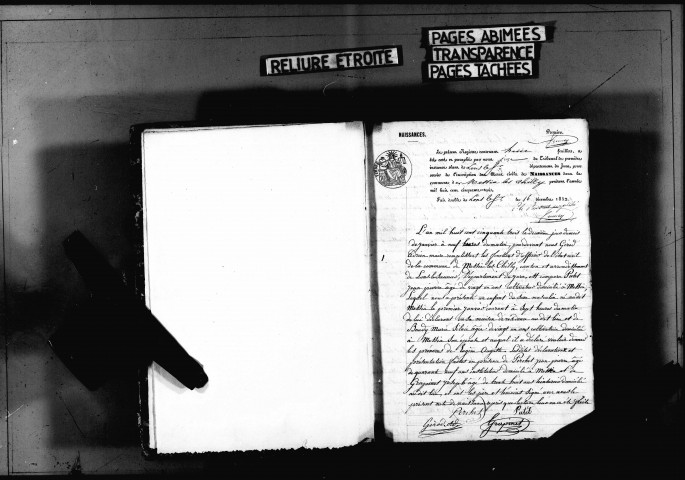 RELIURE ETROITE
PAGES ABIMEES
TRANSPARENCE
PAGES TACHEES
NAISSANCES.
Premier
Le présent Registre, contenant feuillets, a
été coté et paraphé par nous, du Tribunal de première
instance séant à Lons le S. département du Jura, pour
servir à l'inscription des Actes civils de NAISSANCES dans la
commune d Messia les Chilly pendant l'année
mil huit cent cinquante-trois.
Fait et délivré à Lons le S. le 16 décembre 1852.
L'an mil huit cent cinquante trois le deuxième jour du mois
de janvier à neuf heures du matin, pardevant nous Girod
maire remplissant les fonctions d'officier de l'état civil
de la commune de Messia les Chilly, canton et arrondissement
de Lons le Saunier, Département du Jura, est comparu Perchet
jean pierre âgé de vingt un ans cultivateur domicilié à Messia
Lequel nous a présenté un enfant du sexe masculin né audit
Messia le premier janvier courant à sept heures du matin
de lui déclarant en la maison de audit lieu et de
Marie âgée de vingt un ans cultivatrice domiciliée
à Messia son épouse et auquel il a déclaré vouloir donner
les prénoms de Auguste. Lesdites déclaration et
présentation faites en présence de Perchet jean pierre âgé
de quarante neuf ans cultivateur domicilié à Messia et de
âgé de trente huit ans domicilié
audit lieu, et ont les père et témoins signé avec nous le
présent acte de naissance après que lecture leur en a été faite
Perchet Petit
Girod